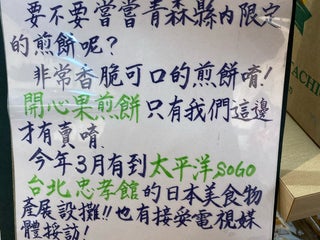 要不要嘗嘗青森縣內限定
的煎餅呢？
非常香脆可口的煎餅唷！
開心果煎餅只有我們這邊
才有賣唷．
今年3月有到太平洋SOGO
台北忠孝館的日本美食物
產展設攤！！也有接受電視媒
體採訪！